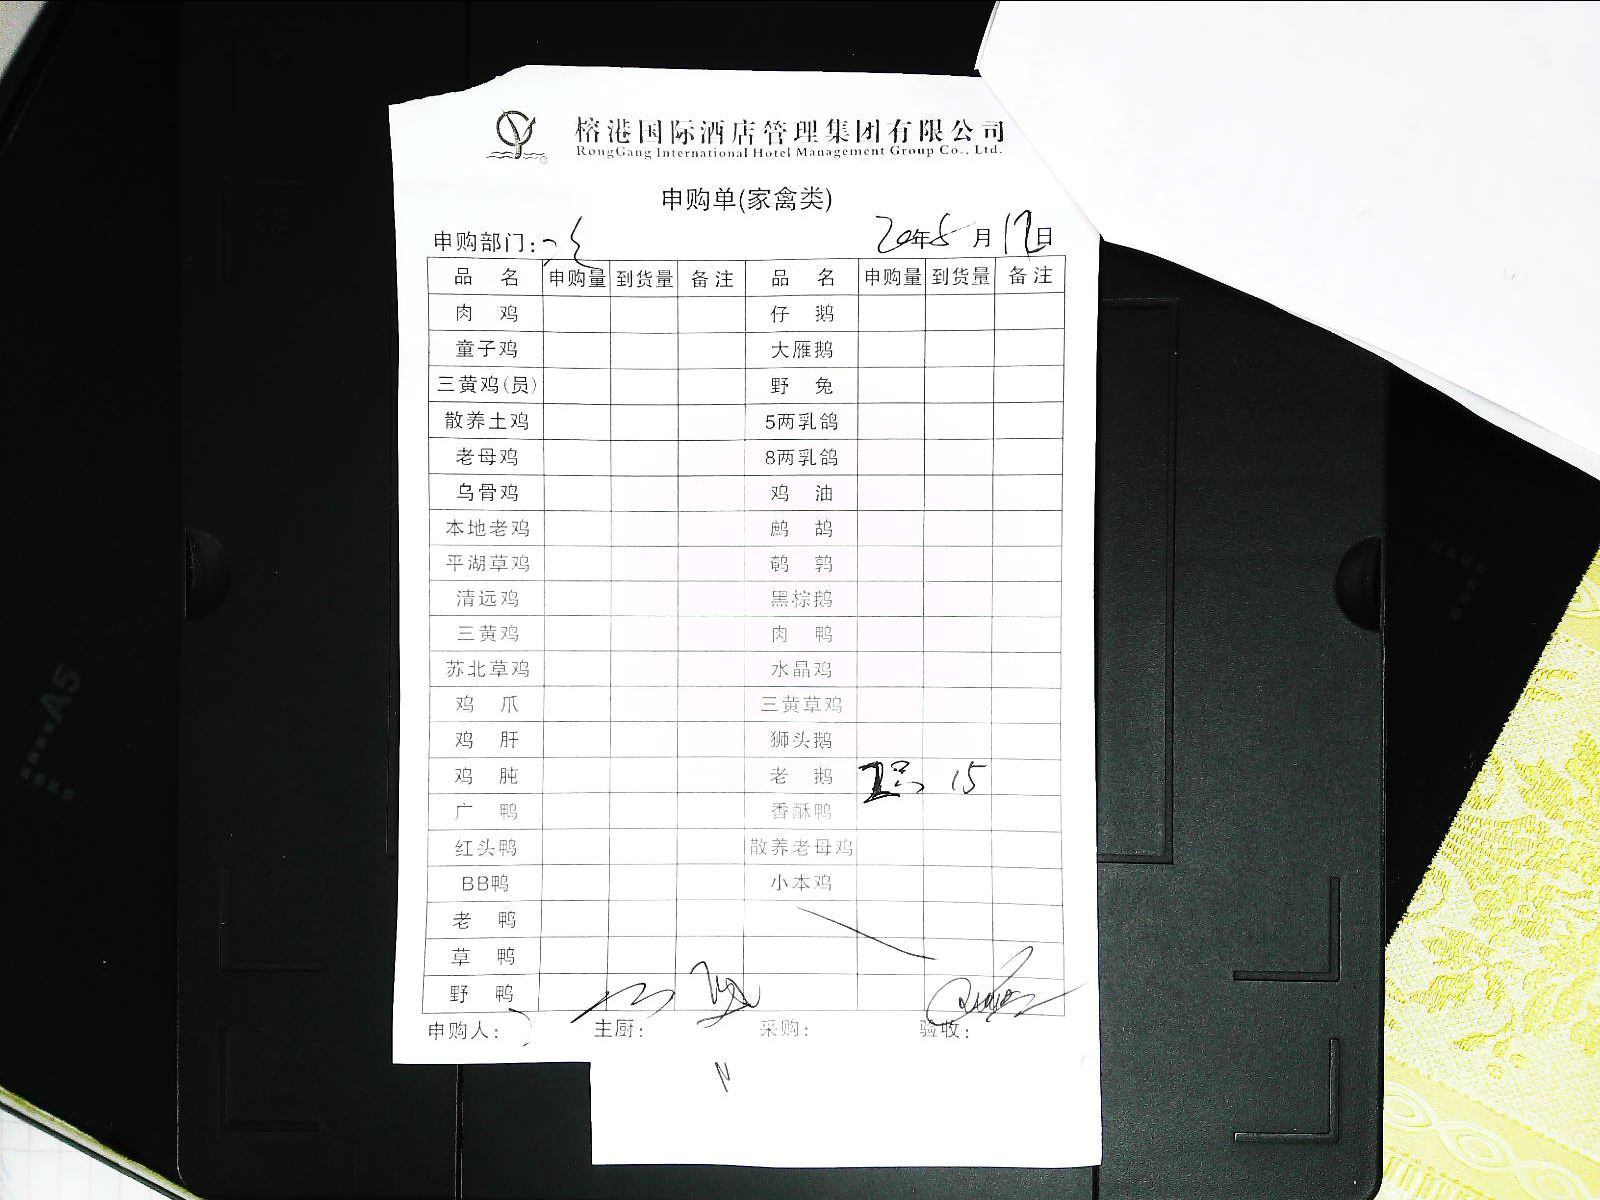 榕港国际酒店管理集团有限公司
RongGang International Hotel Management Group Co., Ltd.
申购单(家禽类)
申购部门: 20年5月12日
品 名 申购量 到货量 备注 品 名 申购量 到货量 备注
肉 鸡 仔 鹅
童子鸡 大雁鹅
三黄鸡(员) 野 兔
散养土鸡 5两乳鸽
老母鸡 8两乳鸽
乌骨鸡 鸡 油
本地老鸡 鹧 鸪
平湖草鸡 鹌 鹑
清远鸡 黑棕鹅
三黄鸡 肉 鸭
苏北草鸡 水晶鸡
鸡 爪 三黄草鸡
鸡 肝 狮头鹅
鸡 肫 老 鹅 15
广 鸭 香酥鸭
红头鸭 散养老母鸡
BB鸭 小本鸡
老 鸭
草 鸭
野 鸭
申购人: 主厨: 采购: 验收:
A5